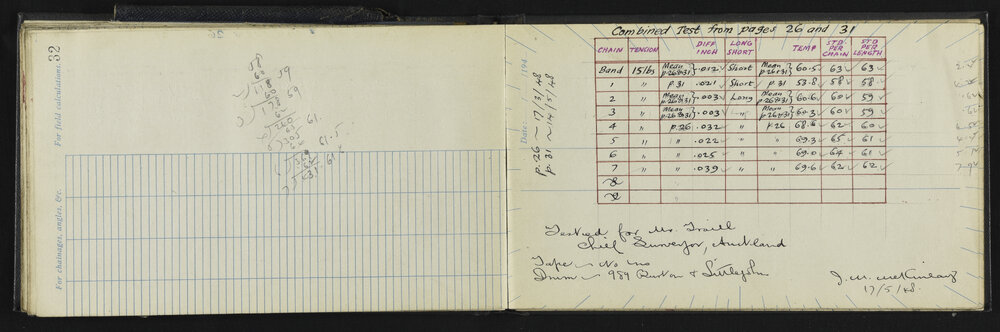 32
For field calculations.
For chainages, angles, &c.
58
60
2)118 59
60
3)178 59
62
4)240
65
5)305 61
64
61.5
Date 194
p.26 ~ 17/3/48
p.31 ~ 14/5/48
Combined Test from pages 26 and 31
CHAIN TENSION DIFF INCH LONG SHORT TEMP STD PER CHAIN STD PER LENGTH
Band 15lbs Mean p.26+31 } .012 Short Mean p.26+31 } 60.5 63 63
1 " p.31 .021 Short p.31 53.8 58 58
2 " Mean p.26+31 } .003 Long Mean p.26+31 } 60.6 60 59
3 " Mean p.26+31 } .003 " Mean p.26+31 } 60.3 60 59
4 " p.26 .032 " p.26 68.6 62 60
5 " " .022 " " 69.3 65 61
6 " " .025 " " 69.0 64 61
7 " " .039 " " 69.6 62 62
8
9
Tested for Mr. Traill
Chief Surveyor, Auckland
Tape ~ No no
Drum ~ 989 Burton & Littlejohn
J. M. McKinlay
17/5/48.